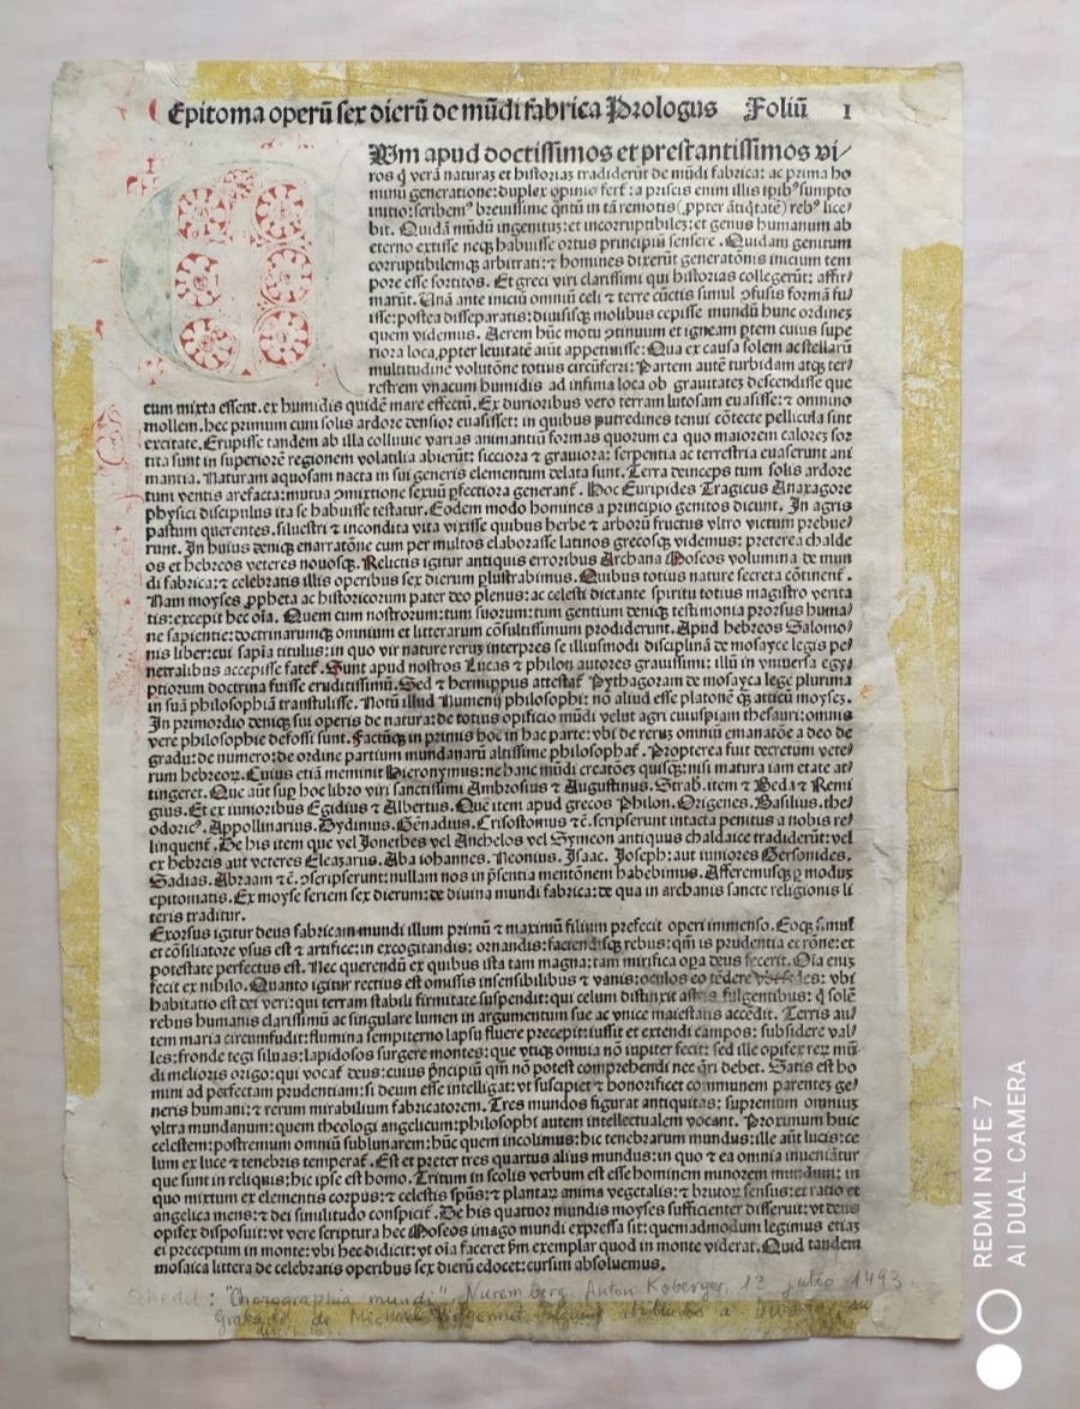 Epitoma operū sex dierū de mūdi fabrica Prologus Foliū I
Um apud doctissimos et prestantissimos vi/
ros q̄ verā naturaꝫ et historiaꝫ tradiderūt de mūdi fabrica: ac prima ho
minū generatione: duplex opinio fert᷑: a priscis enim illis tꝑibꝰ sumpto
initio: scribemꝰ breuissime q̄ntū in tā remotis (ꝓpter ātiq̄tatē) rebꝰ lice/
bit. Quidā mūdū ingenituꝫ: et incorruptibileꝫ: et genus humanum ab
eterno extisse neqꝫ habuisse ortus principiū sensere. Quidam genitum
corruptibilemqꝫ arbitrati: ⁊ homines dixerūt generatōnis inicium tem
pore esse sortitos. Et greci viri clarissimi qui historias collegerūt: affir/
marūt. Unā ante iniciū omniū celi ⁊ terre cūctis simul ꝯfusis formā fu/
isse: postea disseparatis: diuisisqꝫ molibus cepisse mundū hunc ordineꝫ
quem videmus. Aerem hūc motu ꝯtinuum et igneam ptem cuius supe
riora loca ꝓpter leuitatē aiūt appetiuisse: Qua ex causa solem ac stellarū
multitudinē volutōne totius circūferri: Partem autē turbidam atqꝫ ter/
restrem vnacum humidis ad infima loca ob grauitateꝫ descendisse que
cum mixta essent. ex humidis quidē mare effectū. Ex durioribus vero terram lutosam euasisse: ⁊ omnino
mollem. hec primum cum solis ardore densior euasisset: in quibus putredines tenui cōtecte pellicula sint
excitate. Erupisse tandem ab illa colluuie varias animantiū formas quorum ea quo maiorem caloreꝫ sor
tita sunt in superiorē regionem volatilia abierūt: sicciora ⁊ grauiora: serpentia ac terrestria euaserunt ani
mantia. Naturam aquosam nacta in sui generis elementum delata sunt. Terra deinceps tum solis ardore
tum ventis arefacta: mutua ꝯmixtione sexuū ꝑfectiora generant᷑. Hoc Euripides Tragicus Anaxagore
physici discipulus ita se habuisse testatur. Eodem modo homines a principio genitos dicunt. In agris
pastum querentes. siluestri ⁊ incondita vita vixisse quibus herbe ⁊ arborū fructus vltro victum prebue/
runt. In huius deniqꝫ enarratōne cum per multos elaborasse latinos grecosqꝫ videmus: preterea chalde
os et hebreos veteres nouosqꝫ. Relictis igitur antiquis erroribus Archana Moseos volumina de mun
di fabrica: ⁊ celebratis illis operibus sex dierum ꝑlustrabimus. Quibus totius nature secreta cōtinent᷑.
Nam moyses ꝓpheta ac historicorum pater deo plenus: ac celesti dictante spiritu totius magistro verita
tis: excepit hec oīa. Quem cum nostrorum: tum suorum: tum gentium deniqꝫ testimonia prorsus huma/
ne sapientie: doctrinarumqꝫ omnium et litterarum cōsultissimum prodiderunt. Apud hebreos Salomo/
nis liber: cui sapīa titulus: in quo vir nature reruꝫ interpres se illiusmodi disciplinā de mosayce legis pe/
netralibus accepisse fatet᷑. Sunt apud nostros Lucas ⁊ philon autores grauissimi: illū in vniuersa egy/
ptiorum doctrina fuisse eruditissimū. Sed ⁊ hermippus attestat᷑ Pythagoram de mosayca lege plurima
in suā philosophiā transtulisse. Notū illud Numenij philosophi: nō aliud esse platonē q̄ꝫ atticū moyseꝫ.
In primordio deniqꝫ sui operis de natura: de totius opificio mūdi velut agri cuiuspiam thesauri: omnis
vere philosophie defossi sunt. Factūqꝫ in primis hoc in hac parte: vbi de reruꝫ omniū emanatōe a deo de
gradu: de numero: de ordine partium mundanarū altissime philosophat᷑. Propterea fuit decretum vete/
rum hebreoꝝ. Cuius etiā meminit Hieronymus: ne hanc mūdi creatōeꝫ quisqꝫ: nisi matura iam etate at/
tingeret. Que aūt sup hoc libro viri sanctissimi Ambrosius ⁊ Augustinus. Strab. item ⁊ Beda ⁊ Remi
gius. Et ex iunioribus Egidius ⁊ Albertus. Que item apud grecos Philon. Origenes. Basilius. the/
odoricꝰ. Appollinarius. Dydimus. Gēnadius. Crisostomus ⁊c̄. scripserunt intacta penitus a nobis re/
linquent᷑. De his item que vel Jonethes vel Anchelos vel Symeon antiquus chaldaice tradiderūt: vel
ex hebreis aut veteres Eleazarus. Aba iohannes. Neonius. Isaac. Joseph: aut iuniores Gersonides.
Sadias. Abraam ⁊c̄. ꝯscripserunt: nullam nos in p̄sentia mentōnem habebimus. Afferemusqꝫ ꝑ moduꝫ
epitomatis. Ex moyse seriem sex dierum: de diuina mundi fabrica: de qua in archanis sancte religionis li
teris traditur.
Exorsus igitur deus fabricam mundi illum primū ⁊ maximū filium prefecit operi immenso. Eoqꝫ simul
et cōsiliatore vsus est ⁊ artifice: in excogitandis: ornandis: faciendisqꝫ rebus: qm̄ is prudentia et rōne: et
potestate perfectus est. Nec querendū ex quibus ista tam magna: tam mirifica oꝑa deus fecerit. Oīa eniꝫ
fecit ex nihilo. Quanto igitur rectius est omissis insensibilibus ⁊ vanis: oculos eo tēdere: vbi
habitatio est dei veri: qui terram stabili firmitate suspendit: qui celum distinxit astris fulgentibus: q̄ solē
rebus humanis clarissimū ac singulare lumen in argumentum sue ac vnice maiestatis accēdit. Terris au/
tem maria circumfudit: flumina sempiterno lapsu fluere precepit: iussit et extendi campos: subsidere val/
les: fronde tegi siluas: lapidosos surgere montes: que vtiqꝫ omnia nō iupiter fecit: sed ille opifex reꝝ mū
di melioris origo: qui vocat᷑ deus: cuius p̄ncipiū qm̄ nō potest comprehendi nec q̄ri debet. Satis est ho
mini ad perfectam prudentiam: si deum esse intelligat: vt suscipiet ⁊ honorificet communem parenteꝫ ge/
neris humani: ⁊ rerum mirabilium fabricatorem. Tres mundos figurat antiquitas: supremum omniuꝫ
vltra mundanum: quem theologi angelicum: philosophi autem intellectualem vocant. Proximum huic
celestem: postremum omniū sublunarem: hūc quem incolimus: hic tenebrarum mundus: ille aūt lucis: ce
lum ex luce ⁊ tenebris temperat᷑. Est et preter tres quartus alius mundus: in quo ⁊ ea omnia inueniātur
que sunt in reliquis: hic ipse est homo. Tritum in scolis verbum est esse hominem minorem mundum: in
quo mixtum ex elementis corpus: ⁊ celestis sp̄us: ⁊ plantaꝝ anima vegetalis: ⁊ brutoꝝ sensus: et ratio et
angelica mens: ⁊ dei similitudo conspicit᷑. De his quatuor mundis moyses sufficienter disseruit: vt deus
opifex disposuit: vt vere scriptura hec Moseos imago mundi expressa sit: quemadmodum legimus etiaꝫ
ei preceptum in monte: vbi hec didicit: vt oīa faceret ẜm exemplar quod in monte viderat. Quid tandem
mosaica littera de celebratis operibus sex dierū edocet: cursim absoluemus.
Schedel: "Chorographia mundi", Nuremberg, Anton Koberger, 12 julio 1493
Grabados de Michael atribuidos a
REDMI NOTE 7
AI DUAL CAMERA